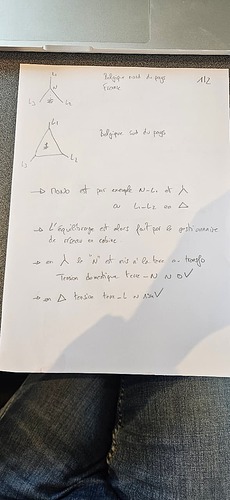 L1
N
L3
L2
Belgique nord du pays
France
1/2
L1
L3
L2
Belgique sud du pays
→ MONO est par exemple N-L1 en ⅄
ou L1-L2 en Δ
→ L'équilibrage est alors fait par le gestionnaire
de réseau en cabine
→ en ⅄ le "N" est mis à la terre au transfo
Tension domestique terre-N ≈ 0V
→ en Δ tension terre-L ≈